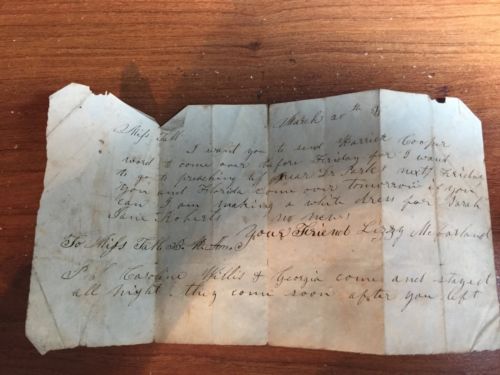 March 20th
Miss Tall
I want you to send Harriet Cooper
word to come over before Friday for I want
to go to preaching at Dr Parks next Friday
you and Florida come over tomorrow if you
can I am making a white dress for Sarah
Jane Roberts no news
Your Friend Lizzy McFarland
To Miss
P S Caroline Willis & Georgia come and stayed
all night. they come soon after you left